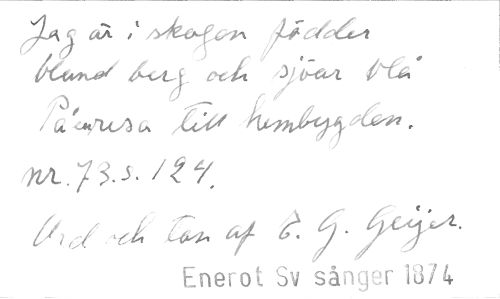 Jag är i skogen födder
bland berg och sjöar blå
På en resa till hembygden.
nr. 73. s. 124.
Ord och ton af E. G. Geijer.
Enerot Sv sånger 1874